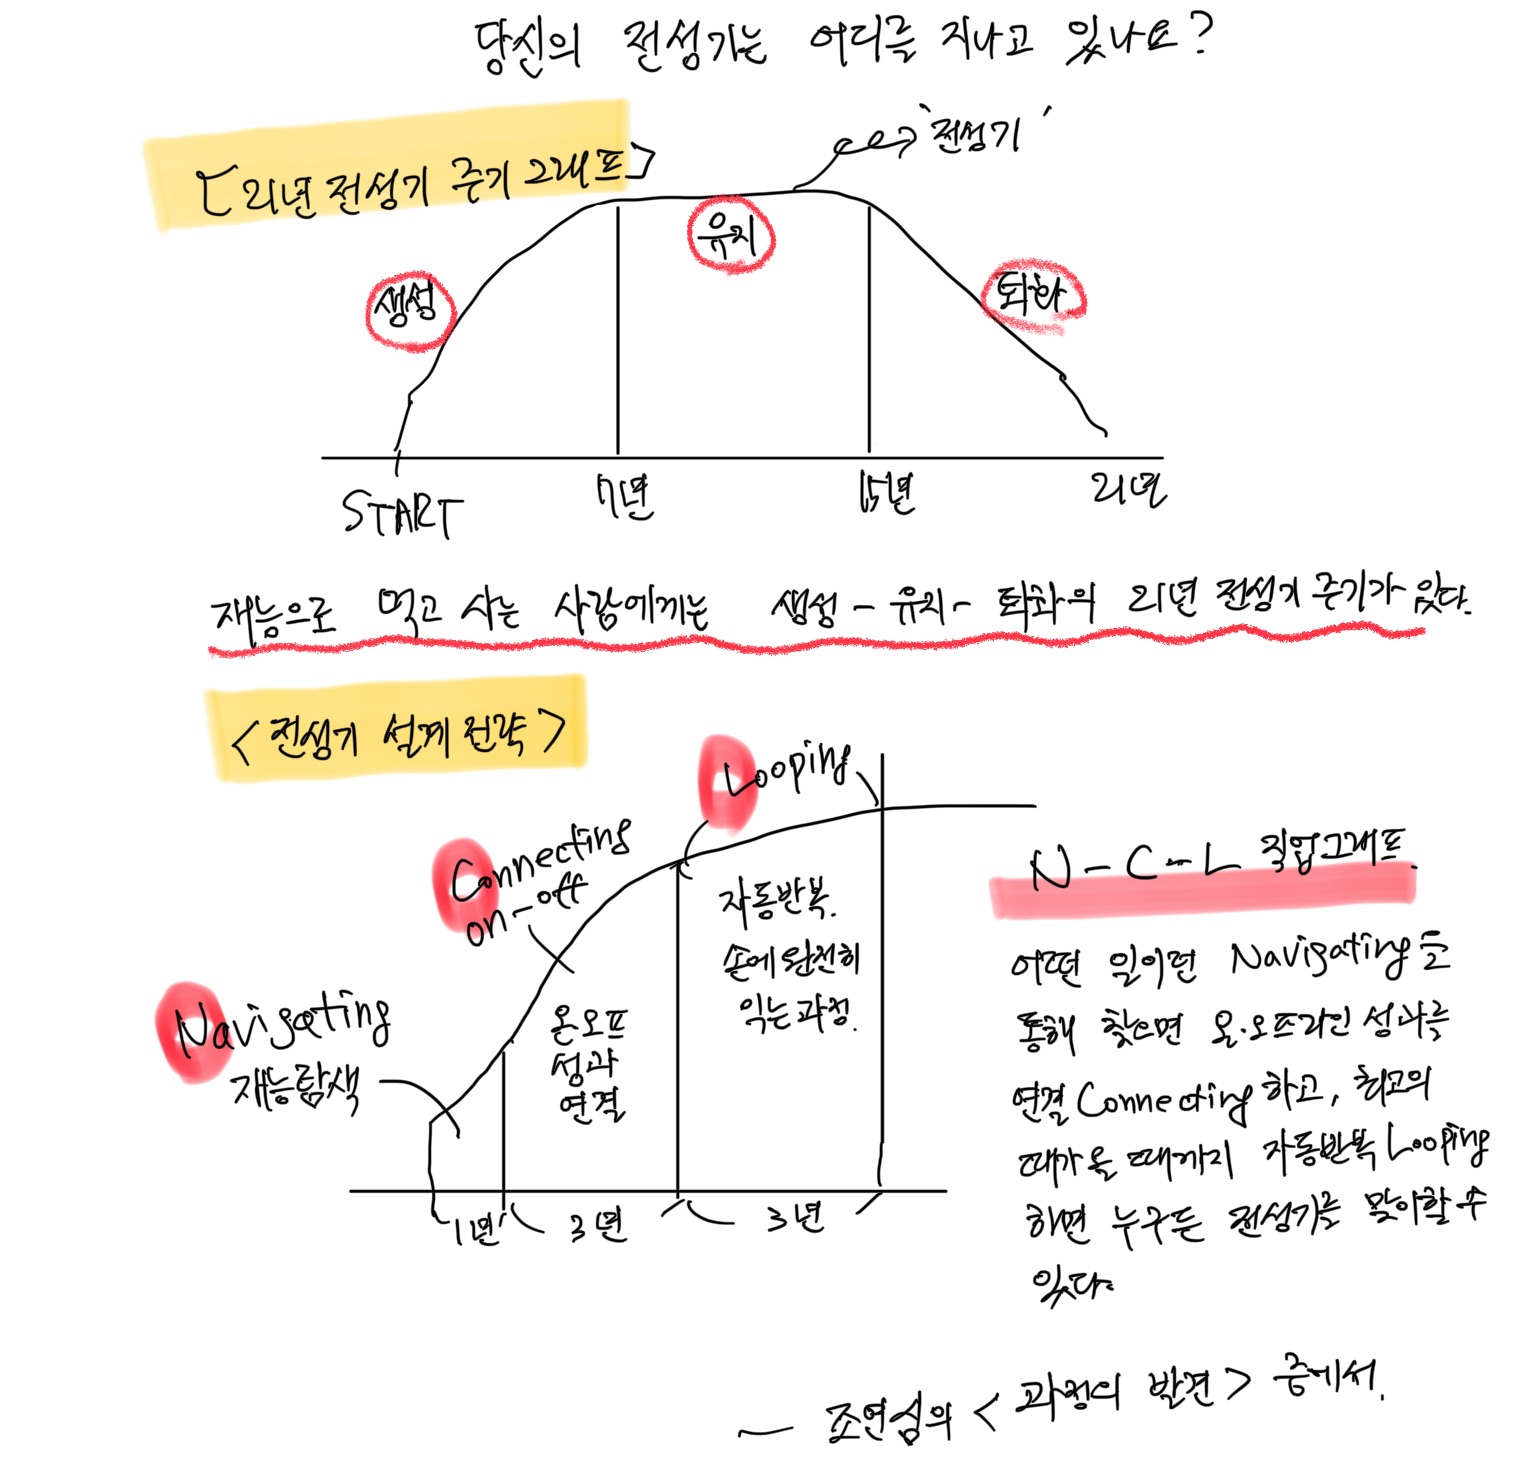 당신의 전성기는 어디를 지나고 있나요?
[21년 전성기 주기 그래프]
'전성기'
생성
유지
퇴화
START
7년
15년
21년
재능으로 먹고 사는 사람에게는 생성-유지-퇴화의 21년 전성기 주기가 있다.
<전성기 설계 전략>
Looping
Connecting
on-off
Navigating
재능탐색
온오프
성과
연결
자동반복.
손에 완전히
익는 과정.
1년
3년
3년
N-C-L 직업그래프.
어떤 일이던 Navigating을
통해 찾으면 온·오프라인 성과를
연결 Connecting 하고, 최고의
때가 올 때까지 자동반복 Looping
하면 누구든 전성기를 맞이할 수
있다.
— 조연심의 <과정의 발견> 중에서.